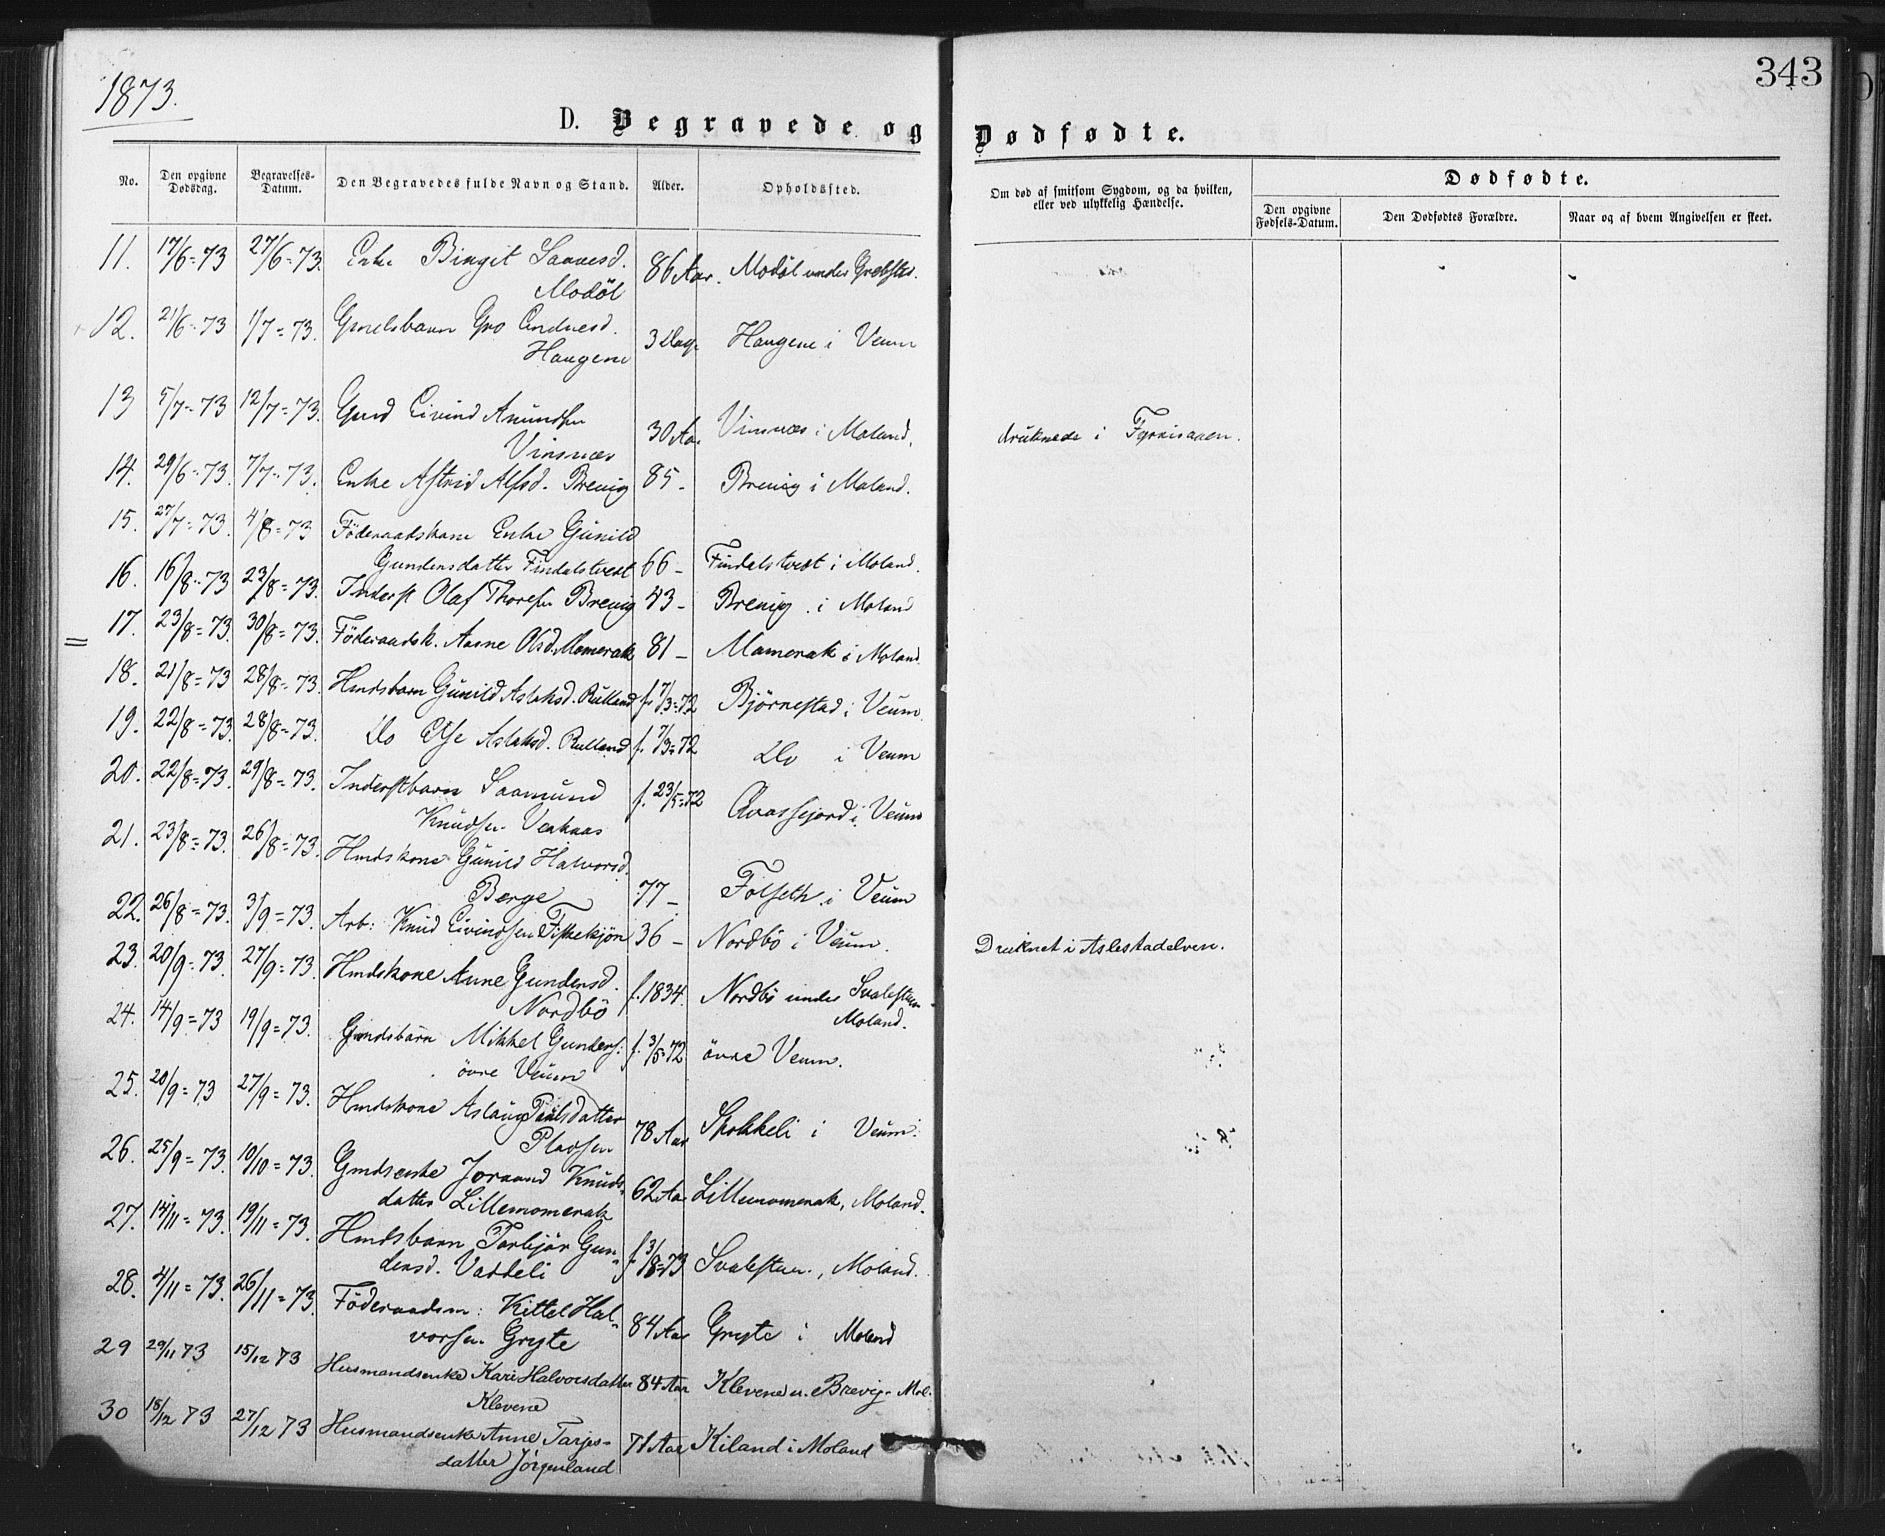 1873.
343
D. Begravede og Dødfødte.
No. Den opgivne Dødsdag. Begravelses-Datum. Den Begravedes fulde Navn og Stand. Alder. Opholdssted. Om død af smitsom Sygdom, og da hvilken, eller ved ulykkelig Hændelse. Dødfødte.
Den opgivne Fødsels-Datum. Den Dødfødtes Forældre. Naar og af hvem Angivelsen er skeet.
11. 17/6=73 27/6=73. Enke Birgit Saavesd. 86 Aar. Modøl under
Modøl
12. 21/6=73 1/7=73. Gro 3 Dage Haugene i Veum
Haugene
13 5/7=73 12/7=73. Gmd Eivind Anundsen 30 Aar Vinsnæs i Moland. druknede i
Vinsnæs
14. 29/6=73. 7/7=73. Enke Astrid Alfsd. Brevig 85- Brevig i Moland.
15. 27/7=73. 4/8=73 Föderaadskone Enke Gunild
Gundersdatter Findalstveit 66- Findalstveit i Moland.
16. 16/8=73 23/8=73. Inderst Olaf Thoresen Brevig 43- Brevig i Moland
17. 23/8=73. 30/8=73. Föderaadsk. Aasne Olsd. Momerak 81- Mamerak i Moland.
18. 21/8=73 28/8=73. Hmdsbarn Gunild Aslaksd. Rulland f. 7/3=72 Bjørnestad i Veum.
19. 22/8=73. 28/8=73. Do Else Aslaksd. Rulland f. 7/3=72 Do i Veum
20. 22/8=73. 29/8=73. Inderstbarn Saamund f. 23/5=72 i Veum
Knudsen
21. 23/8=73. 26/8=73. Hmdskone Gunild Halvorsd.
Berge 77- Folseth i Veum
22. 26/8=73. 3/9=73. Arb: Knud Eivindsen Fiskekjön 36- Nordbö i Veum. Druknet i Aslestadelven.
23. 20/9=73. 27/9=73. Hmdskone Anne Gundersd. f. 1834. Nordbö under Svalestuen
Nordbö Moland.
24. 14/9=73 19/9=73. Gmdsbarn Mikkel Gunders: f. 3/5-72 övre Veum.
övre Veum
25. 20/9=73 27/9=73. Hmdskone Aslaug Paulsdatter 78 Aar Skokkeli i Veum.
Pladsen
26. 25/9=73. 10/10=73. Gmdsenke Joraand Knuds- 62 Aar Lillemomerak, Moland.
datter Lillemomerak
27. 14/11=73. 19/11=73. Hmdsbarn Torbjör Gun- f. 3/8=73 Svalestuen, Moland.
dersd. Vatteli
28. 4/11=73. 26/11=73. Föderaadsm: Kittel Hal- 84 Aar Gryte i Moland
vorsen Gryte
29 29/11 73 15/12 73 Husmandsenke Kari Halvorsdatter 84 Aar Klevene u. Brevig- Mol.
Klevene
30 18/12 73 27/12 73 Husmandsenke Anne Tarjes- 71 Aar Kiland i Moland
datter Jörgenland